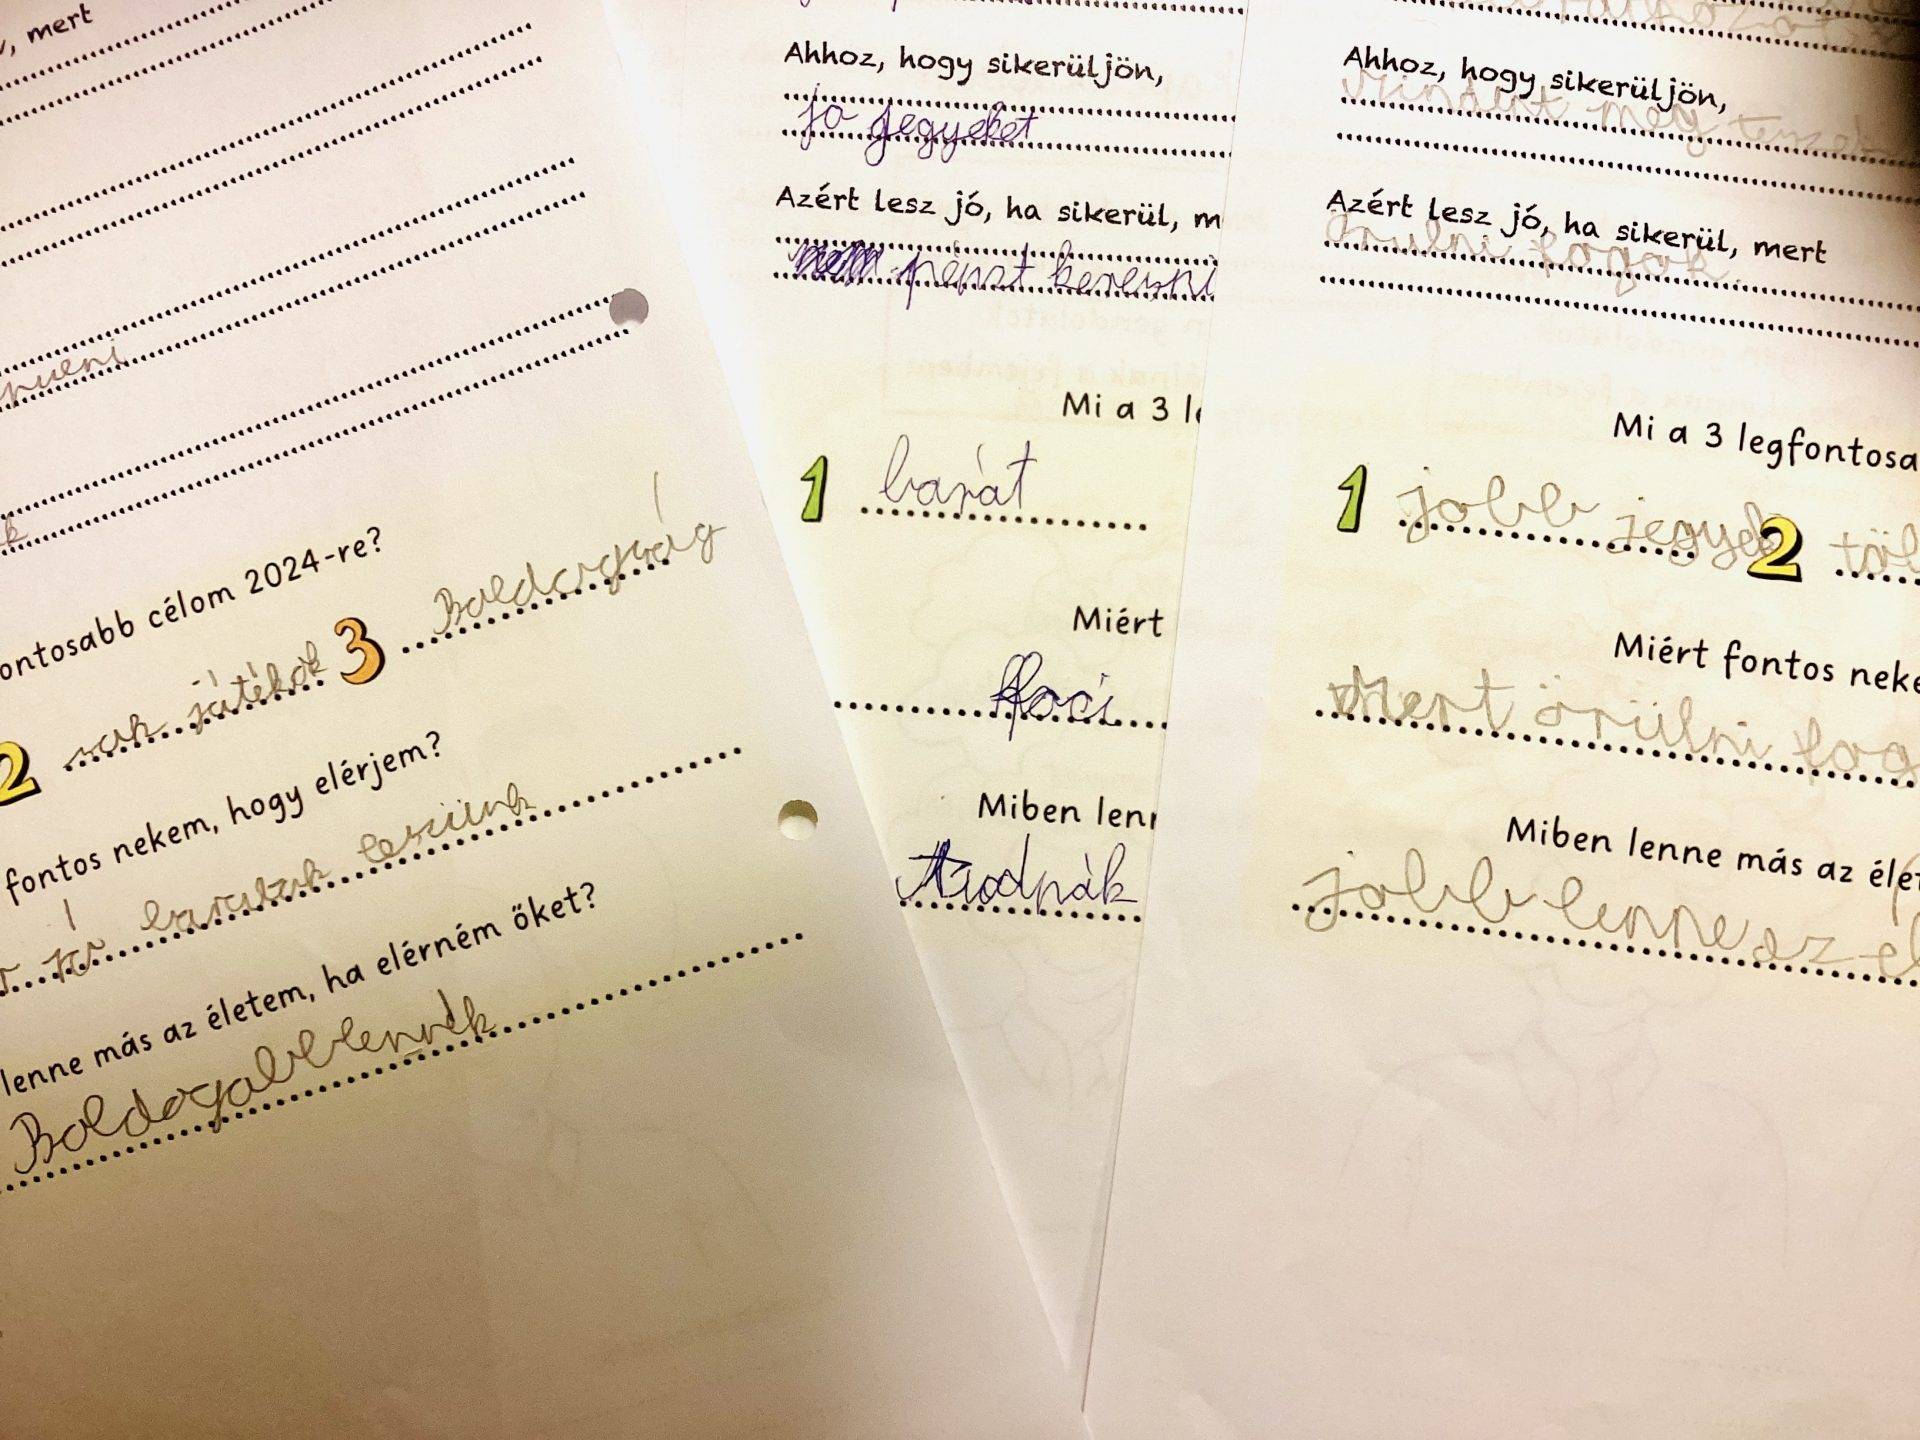 mert
fontosabb célom 2024-re?
2 sok játékok 3 Boldogság
fontos nekem, hogy elérjem?
barátok leszünk
lenne más az életem, ha elérném őket?
Boldogabb lennék
Ahhoz, hogy sikerüljön,
jó jegyeket
Azért lesz jó, ha sikerül, m
pénzt keresni
Mi a 3 le
1 barát
Miért
Foci
Miben lenn
Tudnák
Ahhoz, hogy sikerüljön,
Mindent meg teszek
Azért lesz jó, ha sikerül, mert
örülni fogok
Mi a 3 legfontosa
1 jobb jegyek 2 töb
Miért fontos neke
Mert örülni fog
Miben lenne más az élet
jobb lenne az él